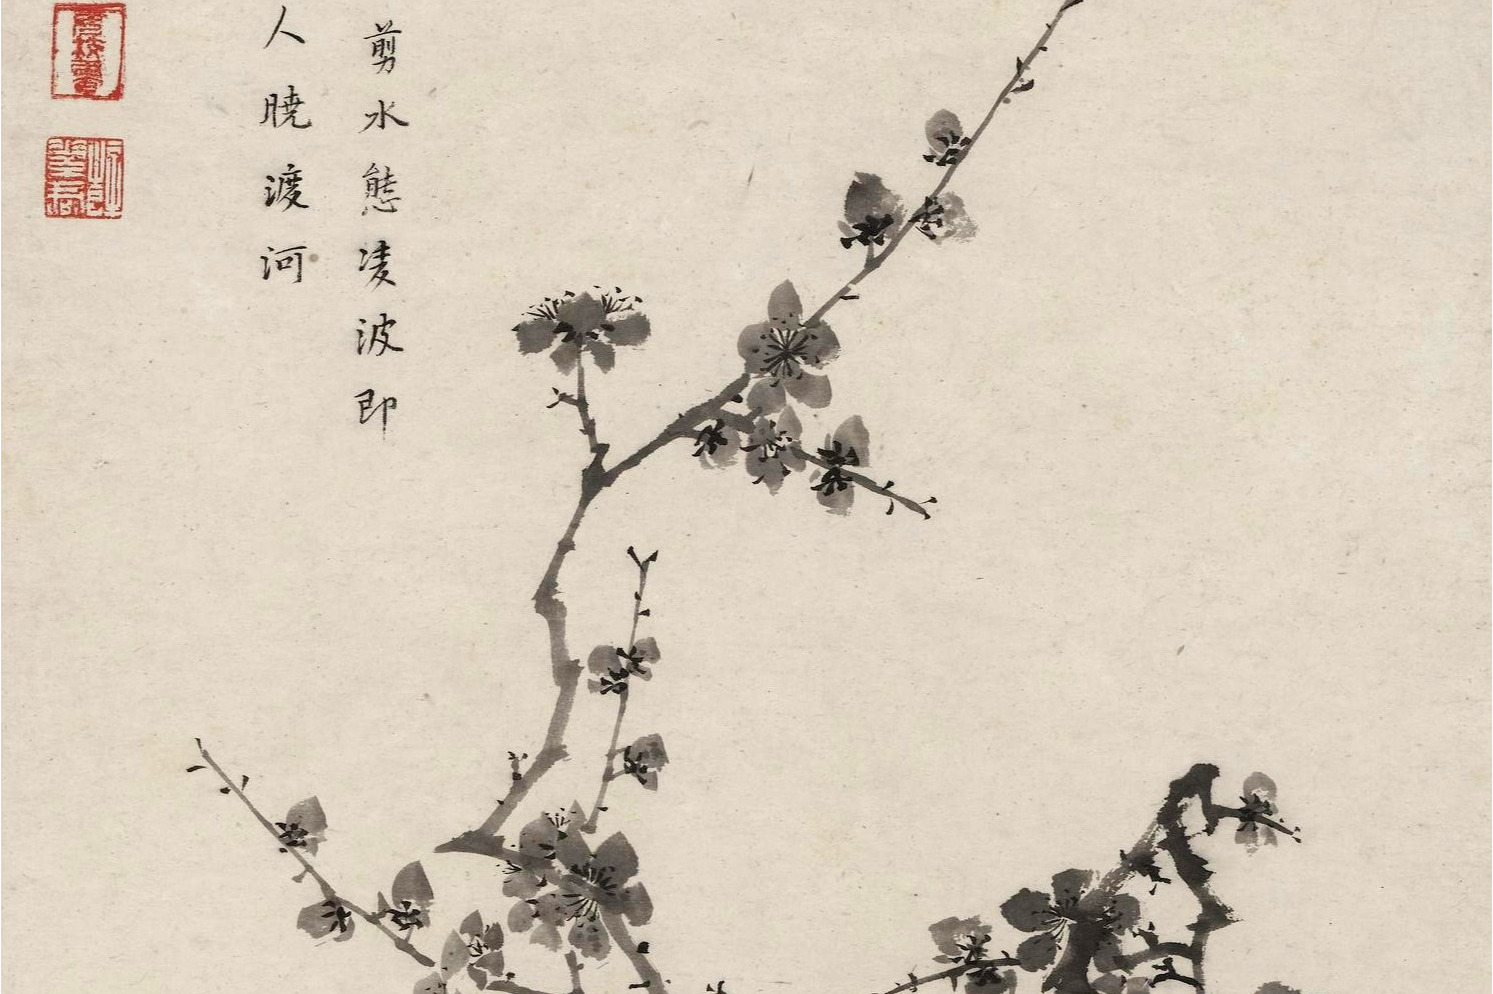 剪水態凌波即
人曉渡河